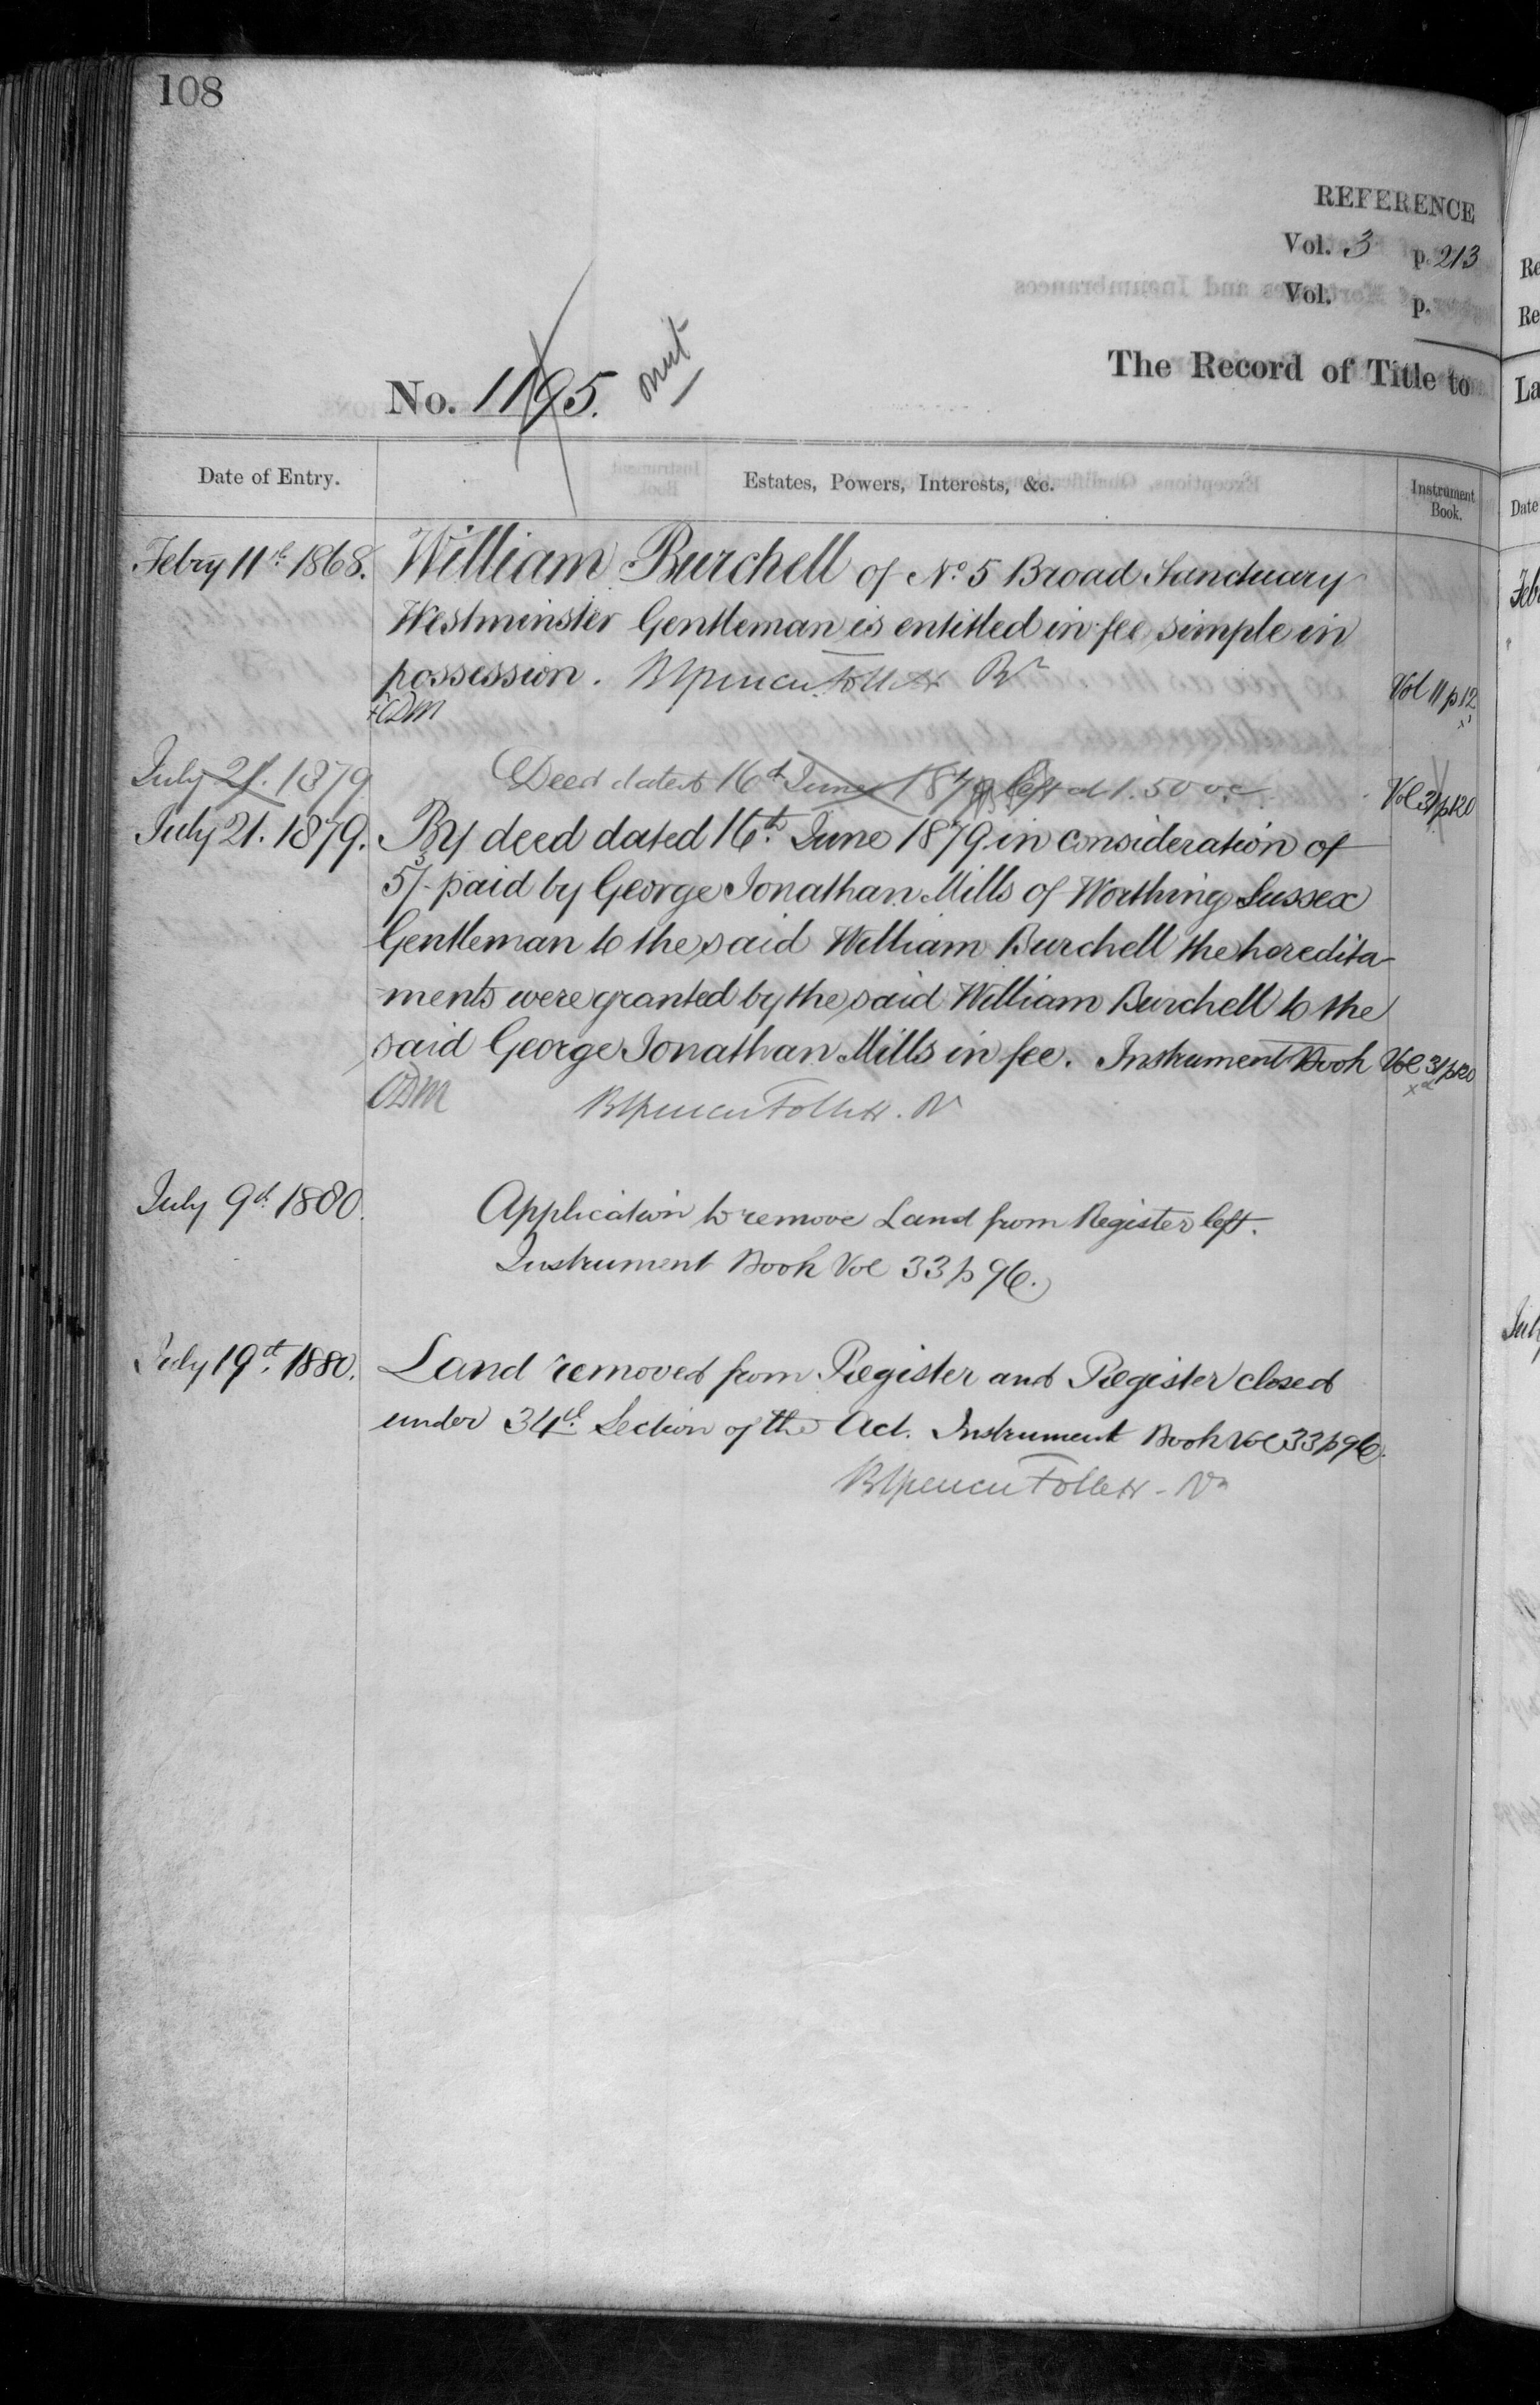 108
REFERENCE
Vol. 3 p. 213
Vol. p.
The Record of Title to
No. 1195. omit
Date of Entry. Estates, Powers, Interests, &c. Instrument Book.
Febry 11th 1868. William Burchell of No. 5 Broad Sanctuary
Westminster Gentleman is entitled in fee simple in
possession. B Spencer Follett Rr Vol 11 p 12
July 21. 1879 Deed dated 16th June 1879 left at 1.50 Vol 31 p 120
July 21. 1879. By deed dated 16th. June 1879 in consideration of
5/- paid by George Jonathan Mills of Worthing Sussex
Gentleman to the said William Burchell the heredita-
ments were granted by the said William Burchell to the
said George Jonathan Mills in fee. Instrument Book Vol 31 p 120
B Spencer Follett. Rr
July 9th 1880. Application to remove Land from Register left.
Instrument Book Vol 33 p 96.
July 19th. 1880. Land removed from Register and Register closed
under 34th. Section of the Act. Instrument Book Vol 33 p 96.
B Spencer Follett - Rr